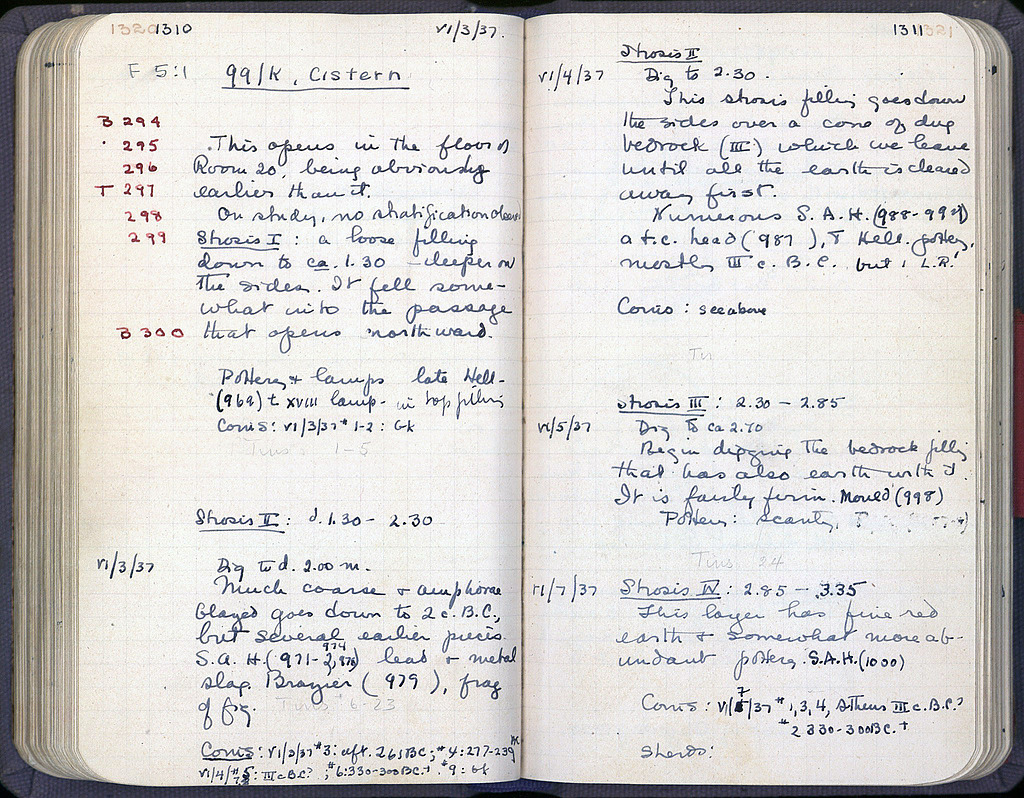 1320 1310
VI/3/37.
F 5:1 99/K, Cistern
B 294
295 This opens in the floor of
296 Room 20, being obviously
T 297 earlier than it.
298 On study, no stratification
299 Strosis I : a loose filling
down to ca. 1.30 – deeper on
the sides. It fell some-
what into the passage
B 300 that opens northward.
Pottery + lamps late Hell-
(969) t XVIII lamp- in top filling
Coins: VI/3/37 # 1-2 : Gk
Tins 1-5
Strosis II : d. 1.30 - 2.30
VI/3/37 Dig to d. 2.00 m.
Much coarse + amphorae
Glazed goes down to 2 c. B.C.,
but several earlier pieces.
974
S.A.H. (971- lead + metal
slag. Brazier (979), frag
of fig. Tins # 6-23
Coins: VI/3/37 #3: aft. 261 BC; #4: 277-239
VI/4/ III c B.C? ; #6: 330-300 BC.+ #9: Gk
1311 1321
Strosis II
VI/4/37 Dig to 2.30.
This strosis filling goes down
the sides over a cone of dug
bedrock (III) which we leave
until all the earth is cleared
away first.
Numerous S.A.H. (988-997)
a t.c. head (987), T Hell. pottery,
mostly III c. B.C. but 1 L.R.!
Coins : see above
Tin
Strosis III : 2.30 – 2.85
VI/5/37 Dig to ca 2.70
Begin digging the bedrock filling
that has also earth with it.
It is fairly firm. Mould (998)
Pottery: scanty, T
Tins 24
VI/7/37 Strosis IV : 2.85 – 3.35
This layer has fine red
earth + somewhat more ab-
undant pottery. S.A.H. (1000)
Coins: VI/7/37 # 1,3,4, Athens III c. B.C.?
# 2 330-300 BC. +
Sherds: